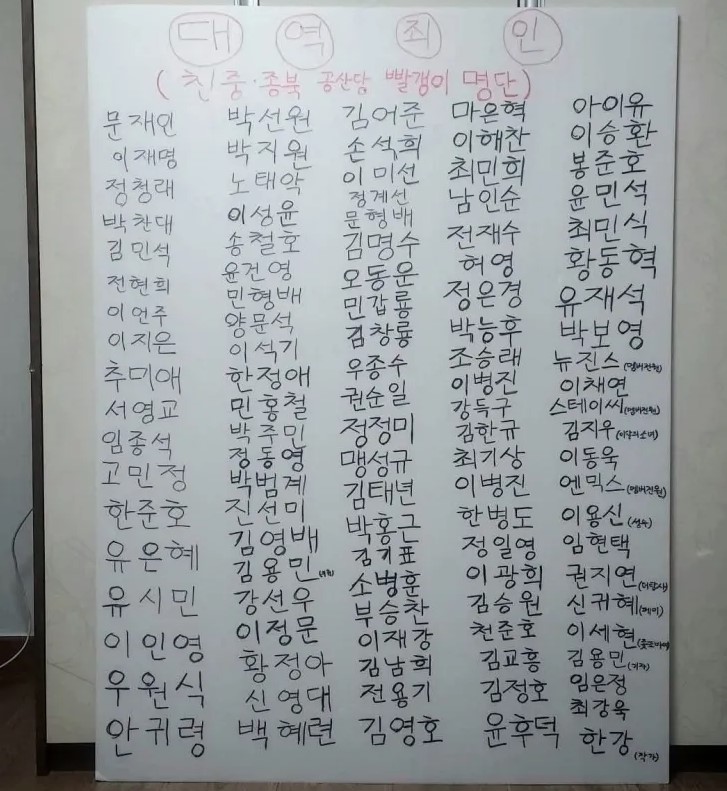 대역죄인
(친중·종북 공산당 빨갱이 명단)
문재인
이재명
정청래
박찬대
김민석
전현희
이언주
이지은
추미애
서영교
임종석
고민정
한준호
유은혜
유시민
이인영
우원식
안귀령
박선원
박지원
노태악
이성윤
송철호
윤건영
민형배
양문석
이석기
한정애
민홍철
박주민
정동영
박범계
진선미
김영배
김용민
강선우
이정문
황정아
신영대
백혜련
김어준
손석희
이미선
정계선
문형배
김명수
오동운
민갑룡
김창룡
우종수
권순일
정정미
맹성규
김태년
박홍근
김기표
소병훈
부승찬
이재강
김남희
전용기
김영호
마은혁
이해찬
최민희
남인순
전재수
허영
정은경
박능후
조승래
이병진
강득구
김한규
최기상
이병진
한병도
정일영
이광희
김승원
천준호
김교흥
김정호
윤후덕
아이유
이승환
봉준호
윤민석
최민식
황동혁
유재석
박보영
뉴진스(멤버전원)
이채연
스테이씨(멤버전원)
김지우(이달의소녀)
이동욱
엔믹스(멤버전원)
이용신(성우)
임현택
권지연
신귀혜
이세현
김용민(기자)
임은정
최강욱
한강(작가)